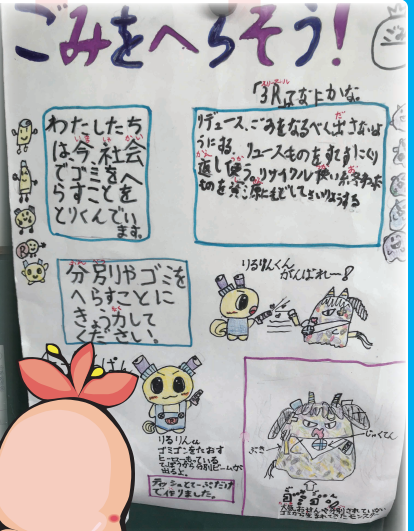 ごみをへらそう!
「3Rはなにかな。
スリーアール
わたしたち
は、今、社会
でゴミをへ
らすことを
とりくんでい
ます。
リデュース、ごみをなるべく出さないよ
うにする。リユースものをすてずにくり
返し使う。リサイクル使い終わった
ものを資源にもどしてさいりようする
分別やゴミを
へらすことに
きょう力して
ください。
りるりんくん
がんばれー!
りるりんは
ゴミゴンをたおす
ヒーロー。もっている
てっぽうから分別ビームが
出るよ。
ティッシュとテープだけ
で作りました。
ぶき
じゃくてん